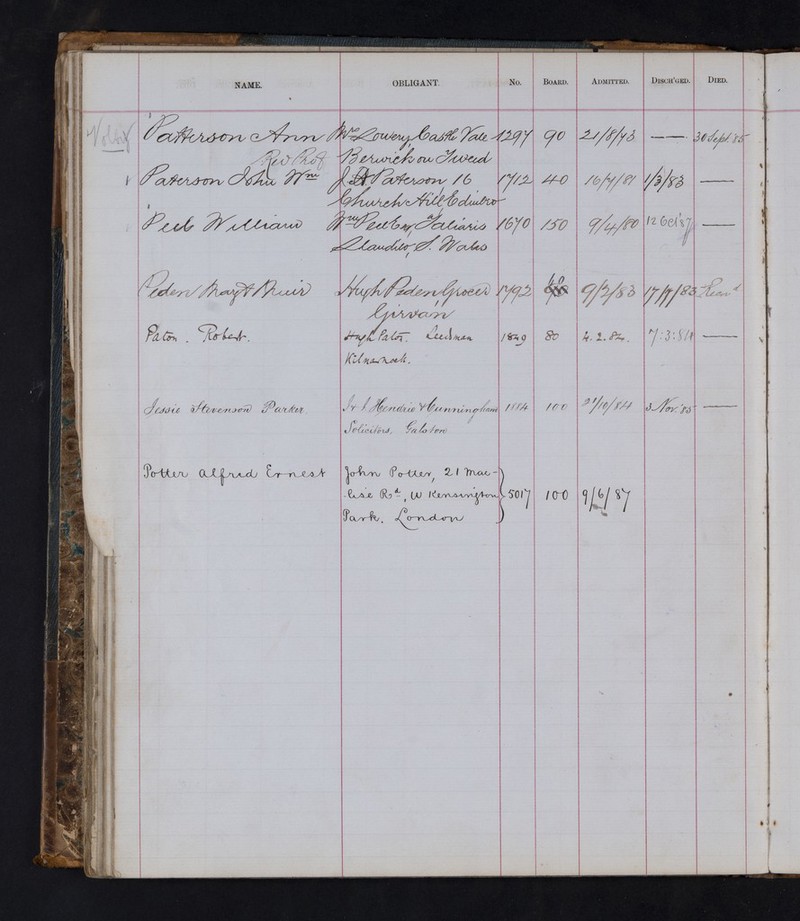 NAME. OBLIGANT. No. BOARD. ADMITTED. DISCH'GED. DIED.
Patterson Ann Lowery Castle Vale 1297 90 21/8/73 —— 30 Sept. 85
Rev Prof Berwick on Tweed
Paterson John Wm J Paterson 16 1712 40 16/4/81 1/3/83 ——
Church Hill Edinbro
Peel William Wm Peel Taliaris 1670 150 9/4/80 12 Oct '87 ——
Llandilo, S. Wales
60
Peden Margt Muir Hugh Peden Grocer 1792 9/2/83 17/7/83
Girvan
Paton. Robert. Hugh Paton. Seedsman 1849 80 4.2.84. 7:3:84 ——
Kilmarnock.
Jessie Stevenson Parker. Hendrie & Cunningham 1884 100 21/10/84 3 Nov. '85 ——
Solicitors. Galston
Potter Alfred Ernest John Potter, 21 Mac-
lise Rd, W Kensington 5017 100 9/6/87
Park. London